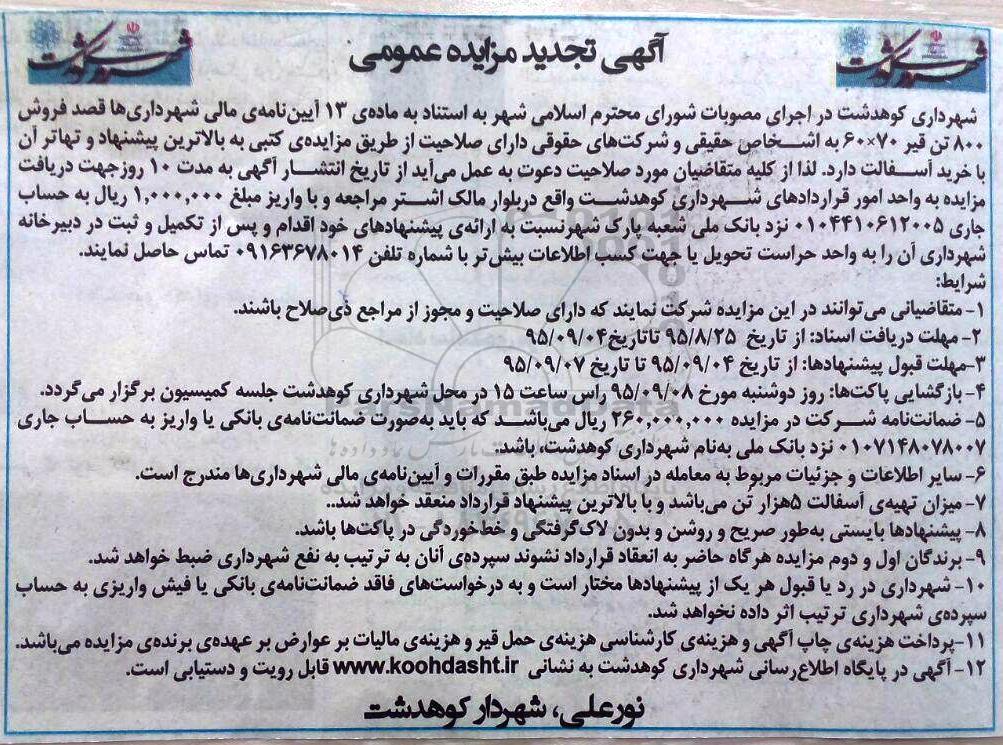 آگهی تجدید مزایده عمومی
شهرداری کوهدشت
شهرداری کوهدشت
شهرداری کوهدشت در اجرای مصوبات شورای محترم اسلامی شهر به استناد به ماده‌ی ۱۳ آیین‌نامه‌ی مالی شهرداری‌ها قصد فروش
۸۰۰ تن قیر ۷۰×۶۰ به اشخاص حقیقی و شرکت‌های حقوقی دارای صلاحیت از طریق مزایده‌ی کتبی به بالاترین پیشنهاد و تهاتر آن
با خرید آسفالت دارد. لذا از کلیه متقاضیان مورد صلاحیت دعوت به عمل می‌آید از تاریخ انتشار آگهی به مدت ۱۰ روزجهت دریافت
مزایده به واحد امور قراردادهای شهرداری کوهدشت واقع دربلوار مالک اشتر مراجعه و با واریز مبلغ ۱,۰۰۰,۰۰۰ ریال به حساب
جاری ۰۱۰۴۴۱۰۶۱۲۰۰۵ نزد بانک ملی شعبه پارک شهرنسبت به ارائه‌ی پیشنهادهای خود اقدام و پس از تکمیل و ثبت در دبیرخانه
شهرداری آن را به واحد حراست تحویل یا جهت کسب اطلاعات بیش‌تر با شماره تلفن ۰۹۱۶۳۶۷۸۰۱۴ تماس حاصل نمایند.
شرایط:
۱- متقاضیانی می‌توانند در این مزایده شرکت نمایند که دارای صلاحیت و مجوز از مراجع ذی‌صلاح باشند.
۲- مهلت دریافت اسناد: از تاریخ ۹۵/۸/۲۵ تاتاریخ۹۵/۰۹/۰۴
۳-مهلت قبول پیشنهادها: از تاریخ ۹۵/۰۹/۰۴ تا تاریخ ۹۵/۰۹/۰۷
۴- بازگشایی پاکت‌ها: روز دوشنبه مورخ ۹۵/۰۹/۰۸ راس ساعت ۱۵ در محل شهرداری کوهدشت جلسه کمیسیون برگزار می‌گردد.
۵- ضمانت‌نامه شرکت در مزایده ۲۶۰,۰۰۰,۰۰۰ ریال می‌باشد که باید به‌صورت ضمانت‌نامه‌ی بانکی یا واریز به حساب جاری
۰۱۰۷۱۴۸۰۷۸۰۰۷ نزد بانک ملی به‌نام شهرداری کوهدشت، باشد.
۶- سایر اطلاعات و جزئیات مربوط به معامله در اسناد مزایده طبق مقررات و آیین‌نامه‌ی مالی شهرداری‌ها مندرج است.
۷- میزان تهیه‌ی آسفالت ۵هزار تُن می‌باشد و با بالاترین پیشنهاد قرارداد منعقد خواهد شد..
۸- پیشنهادها بایستی به‌طور صریح و روشن و بدون لاک‌گرفتگی و خط‌خوردگی در پاکت‌ها باشد.
۹- برندگان اول و دوم مزایده هرگاه حاضر به انعقاد قرارداد نشوند سپرده‌ی آنان به ترتیب به نفع شهرداری ضبط خواهد شد.
۱۰- شهرداری در رد یا قبول هر یک از پیشنهادها مختار است و به درخواست‌های فاقد ضمانت‌نامه‌ی بانکی یا فیش واریزی به حساب
سپرده‌ی شهرداری ترتیب اثر داده نخواهد شد.
۱۱-پرداخت هزینه‌ی چاپ آگهی و هزینه‌ی کارشناسی هزینه‌ی حمل قیر و هزینه‌ی مالیات بر عوارض بر عهده‌ی برنده‌ی مزایده می‌باشد.
۱۲- آگهی در پایگاه اطلاع‌رسانی شهرداری کوهدشت به نشانی www.koohdasht.ir قابل رویت و دستیابی است.
نورعلی، شهردار کوهدشت